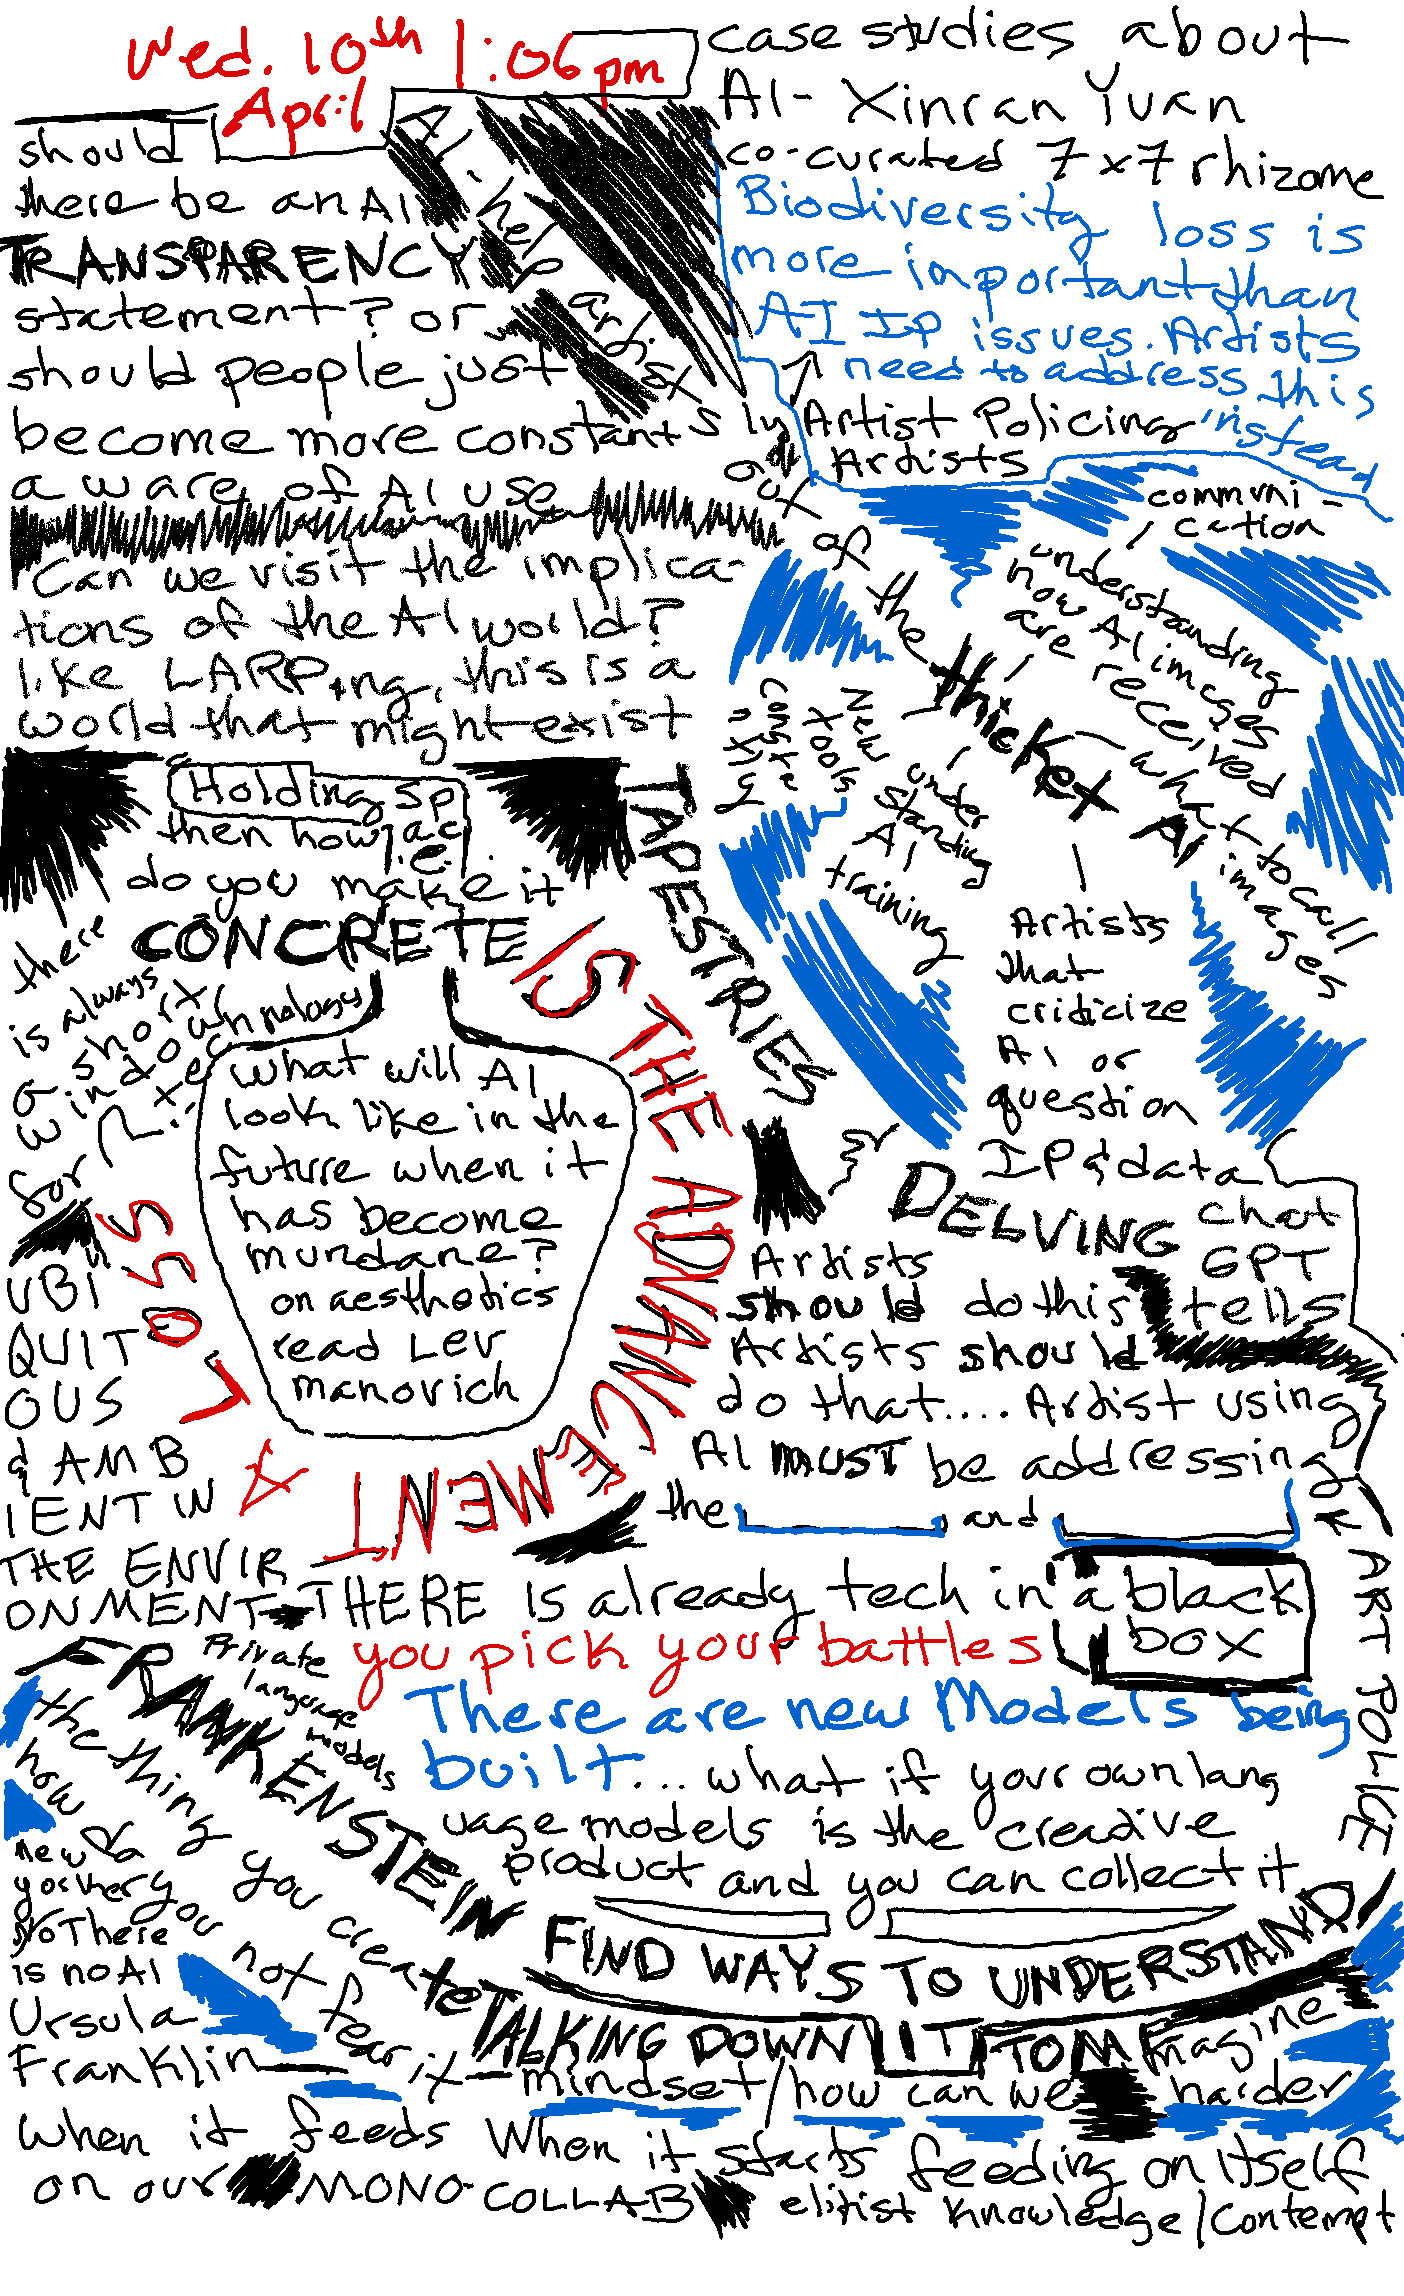 Wed. 10th 1:06pm
April
should
there be an AI
TRANSPARENCY
statement? or
should people just
become more constant
aware of AI use
AI help artists
out of the thicket
case studies about
AI - Xinran Yuan
co-curated 7x7 rhizome
Biodiversity loss is
more important than
AI IP issues. Artists
need to address this
instead
Artist Policing
Artists
communi-
cation
understanding
how AI images
are received
what to call
AI images
New
tools
constantly
under
standing
AI
training
Artists
that
criticize
AI or
question
IP & data
Can we visit the implica-
tions of the AI world?
like LARPing, this is a
world that might exist
Holding space
i.e.
then how
do you make it
CONCRETE
there
is always
a short
window
for
technology
what will AI
look like in the
future when it
has become
mundane?
on aesthetics
read Lev
manovich
LOSS IS THE ADVANCEMENT
TAPESTRIES
UBI
QUIT
OUS
& AMB
IENT IN
THE ENVIR
ONMENT
DELVING
chat
GPT
tells
Artists
should do this
Artists should
do that.... Artist using
AI MUST be addressing
the ____ and ____
ART POLICE
THERE IS already tech in a black
box
you pick your battles
There are new Models being
built... what if your own lang
uage models is the creative
product and you can collect it
Private
language
models
FRANKENSTEIN
the thing you create
how do you not fear it - mindset/how can we imagine harder
new
yorker
no There
is no AI
Ursula
Franklin
FIND WAYS TO UNDERSTAND
TALKING DOWN IT TO ME
When it feeds When it starts feeding on itself
on our MONO-COLLAB elitist knowledge/contempt